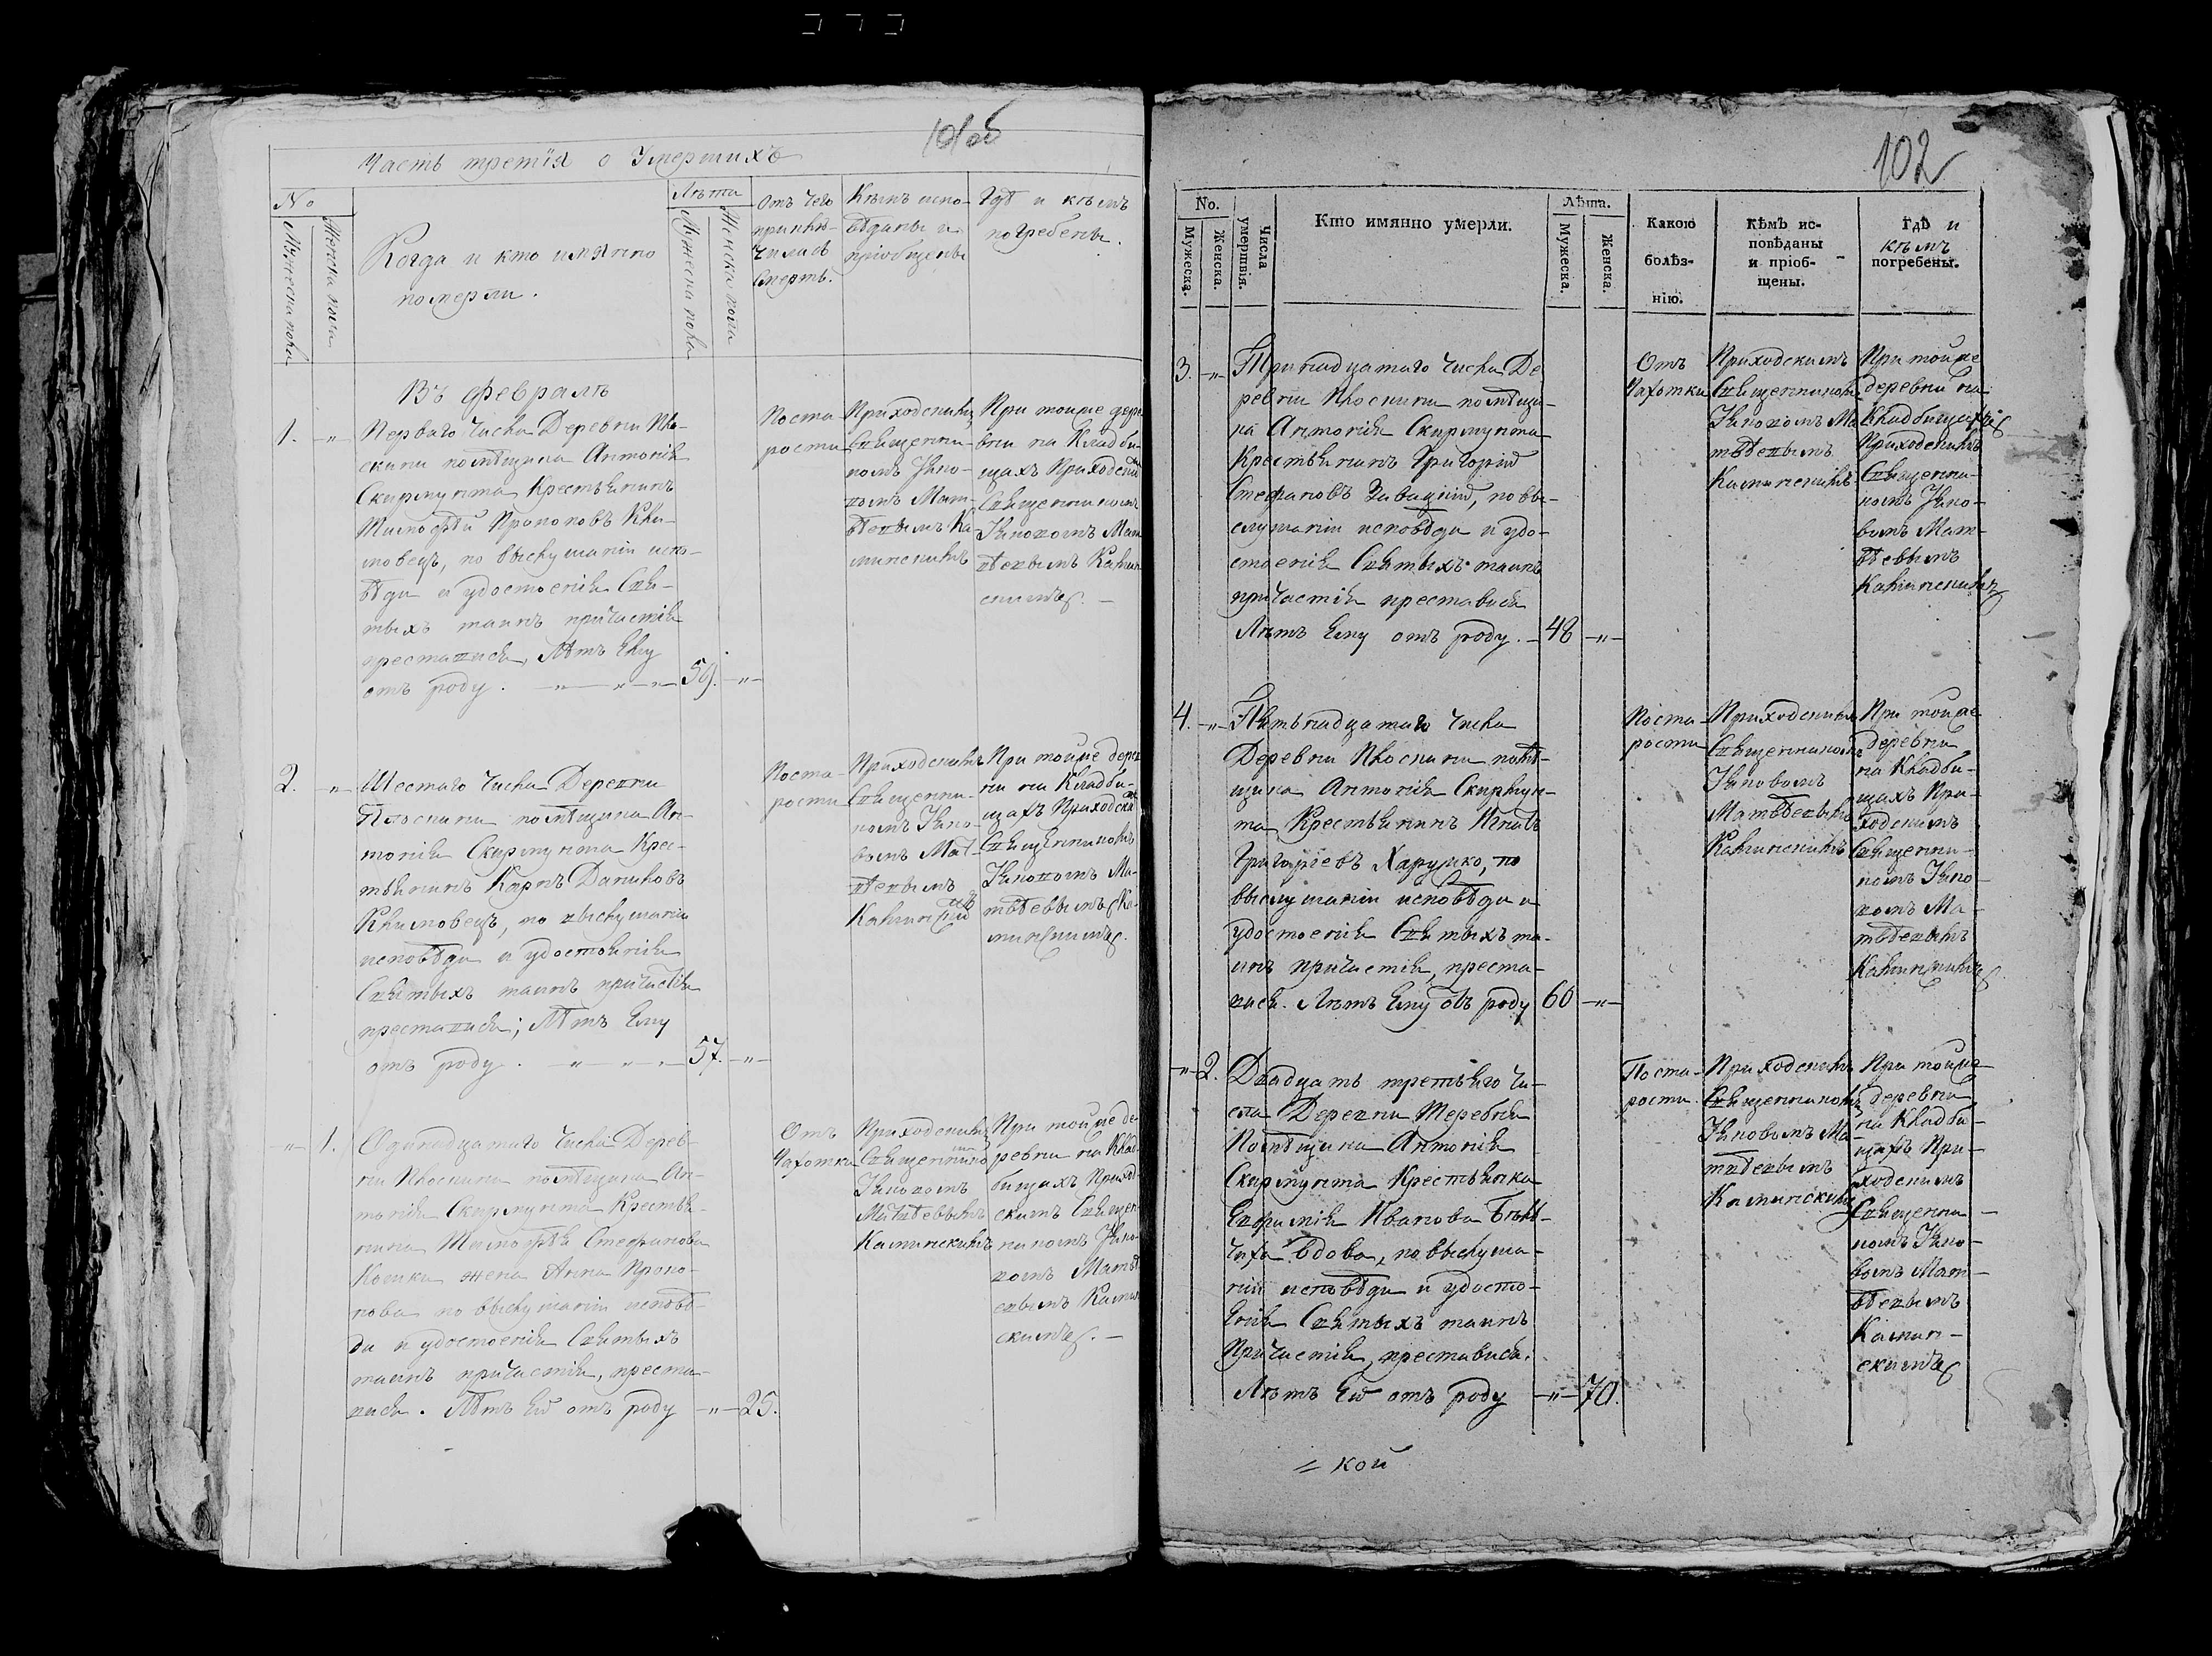 101об
Часть третія о Умершихъ
No
Мужеска пола
Женска пола
Когда и кто имянно
померли.
Лѣта
Мужеска пола
Женска пола
Отъ чего
приклю-
чилась
смерть.
Кѣмъ испо-
вѣданы и
пріобщены
Гдѣ и кѣмъ
погребены.
Въ Февралѣ
1. -"-
Перваго числа Деревни Пло-
скини помѣщика Антонія
Скирмунта Крестьянинъ
Тимофѣй Прокоповъ Кли-
мовецъ, по выслушаніи испо-
вѣди и удостоенія Свя-
тыхъ таинъ причастія
преставися, Лѣтъ Ему
отъ роду. -"-"-"- 59. -"-
Поста-
рости
Приходскимъ
Священни-
комъ Яко-
вомъ Мат-
вѣевымъ Ка-
минскимъ
При тойже дере-
вни на Кладби-
щахъ Приходским
Священникомъ
Яковомъ Мат
вѣевымъ Камин
скимъ. -
2. "
Шестаго числа Деревни
Плоскини помѣщика Ан-
тонія Скирмунта Крес-
тьянинъ Карпъ Даниловъ
Климовецъ, по выслушаніи
исповѣди и удостоенія
Святыхъ таинъ причастія
преставися; Лѣтъ Ему
отъ роду. " - " - " - 57. -"-
Поста-
рости
Приходскимъ
Священни-
комъ Яко-
вомъ Мат-
вѣевымъ
Каминскимъ
При тойже дерев
ни на Кладби-
щахъ Приходским
Священникомъ
Яковомъ Ма-
твѣевымъ Ка-
минскимъ.
-"- 1.
Одинадцатаго числа Дерев-
ни Плоскини помѣщика Ан-
тонія Скирмунта Крестья-
нина Тимофѣя Стефанова
жена Анна Проко-
пова по выслушаніи исповѣ-
ди и удостоенія Святыхъ
таинъ причастія, преста-
вися. Лѣтъ Ей отъ роду -"- 25.
Отъ
Чахотки
Приходскимъ
Священником
Яковомъ
Матвѣевымъ
Каминскимъ
При тойже де
ревни на Клад
бищахъ Приход-
скимъ Священ-
никомъ Яко-
вомъ Матвѣ
евымъ Камин
скимъ. -
102
No.
Мужеска.
Женска.
Числа
умертвія.
Кто имянно умерли.
Лѣта.
Мужеска.
Женска.
Какою
болѣз-
нію.
Кѣмъ ис-
повѣданы
и пріоб-
щены.
Гдѣ и
кѣмъ
погребены.
3. -"-
Тринадцатаго числа Де
ревни Плоскини помѣщи-
ка Антонія Скирмунта
Крестьянинъ Григорій
Стефановъ Завацкій, по вы-
слушаніи исповѣди и удо-
стоенія Святыхъ таинъ
причастія преставися
Лѣтъ Ему отъ роду. - 48 -"-
Отъ
Чахотки
Приходскимъ
Священником
Яковомъ Ма
твѣевымъ
Каминскимъ
При тойже
деревни на
Кладбищахъ
Приходскимъ
Священни-
комъ Яко-
вомъ Мат-
вѣевымъ
Каминскимъ
4. -"-
Пятьнадцатаго числа
Деревни Плоскини помѣ-
щика Антонія Скирмун-
та Крестьянинъ Игнатъ
Григорьевъ Харушко, по
выслушаніи исповѣди и
удостоенія Святыхъ та-
инъ причастія, преста-
вися. Лѣтъ Ему объ роду 60 -"-
Поста-
рости
Приходскимъ
Священникомъ
Яковомъ
Матвѣевымъ
Каминскимъ
При тойже
деревни
на Кладби-
щахъ При-
ходскимъ
Священни-
комъ Яко-
вомъ Ма-
твѣевымъ
Каминскимъ
-"- 2.
Двадцать третьяго чи-
сла Деревни Теребня
Помѣщика Антонія
Скирмунта Крестьянка
Евфимія Иванова
вдова, по выслуша-
ніи исповѣди и удосто-
енія Святыхъ таинъ
Причастія, преставися,
Лѣтъ Ей отъ роду -"- 70.
Поста-
рости.
Приходскимъ
Священникомъ
Яковомъ Ма-
твѣевымъ
Каминскимъ
При тойже
деревни
на Кладби-
щахъ При-
ходскимъ
Священни-
комъ Яко-
вомъ Мат-
вѣевымъ
Камин-
скимъ
= кой